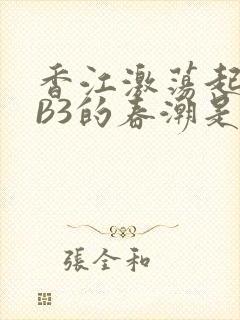 香江激荡起
B3的春潮是
張全和